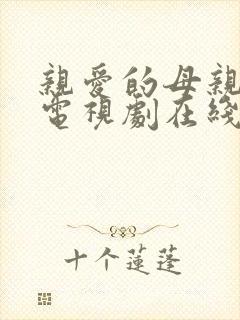 親愛的母親
電視劇在綫
十个蓮蓬